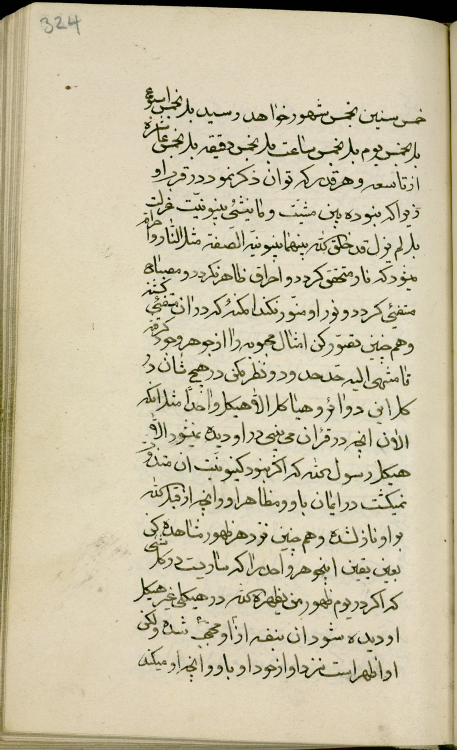 324
خمس سنین بخمس شهور خواهد رسید بل بخمس اسبوع
بل بخمس یوم بل بخمس ساعت بل بخمس دقیقه بل بخمس عاشره
از تاسعه و هر قدر که توان ذکر نمود در قرب او
زیرا که نبوده بین مشیت و مایشئ بینونیت عزلت
بل لم یزل قد خلق الله بینهما بینونیة الصفة مثل النار روا
نبود که نار متحقق گردد و احراق ظاهر نگردد و مصباح
متضیئ گردد و نور او منور نکند امکنه که در آن متضیئ گشته
و هم چنین تصور کن امثال محبوبه را از جوهر وجود گرفته
تا منتهی الیه حد حدود و نظر مکن در هیچ شأن در
کل این دوائر و هیاکل الا هیکل واحد مثل آنکه
الآن آنچه در قرآن می بینی در او دیده نمیشود الا
هیکل رسول الله که اگر نبود کینونیت ان متذوت
نمیگشت در ایمان باو و مظاهر او و آنچه از قبل الله
بر او نازل شده و هم چنین نزد هر ظهور مشاهده کن
بعین یقین این جوهر واحد را که ساریست در کل شیئ
که اگر در یوم ظهور من یظهره الله در هیکلی غیر هیکل
او دیده شود آن بنفسه از او محتجب شده ولکن
او اظهر است نزد او از خود او باو و آنچه او میکند